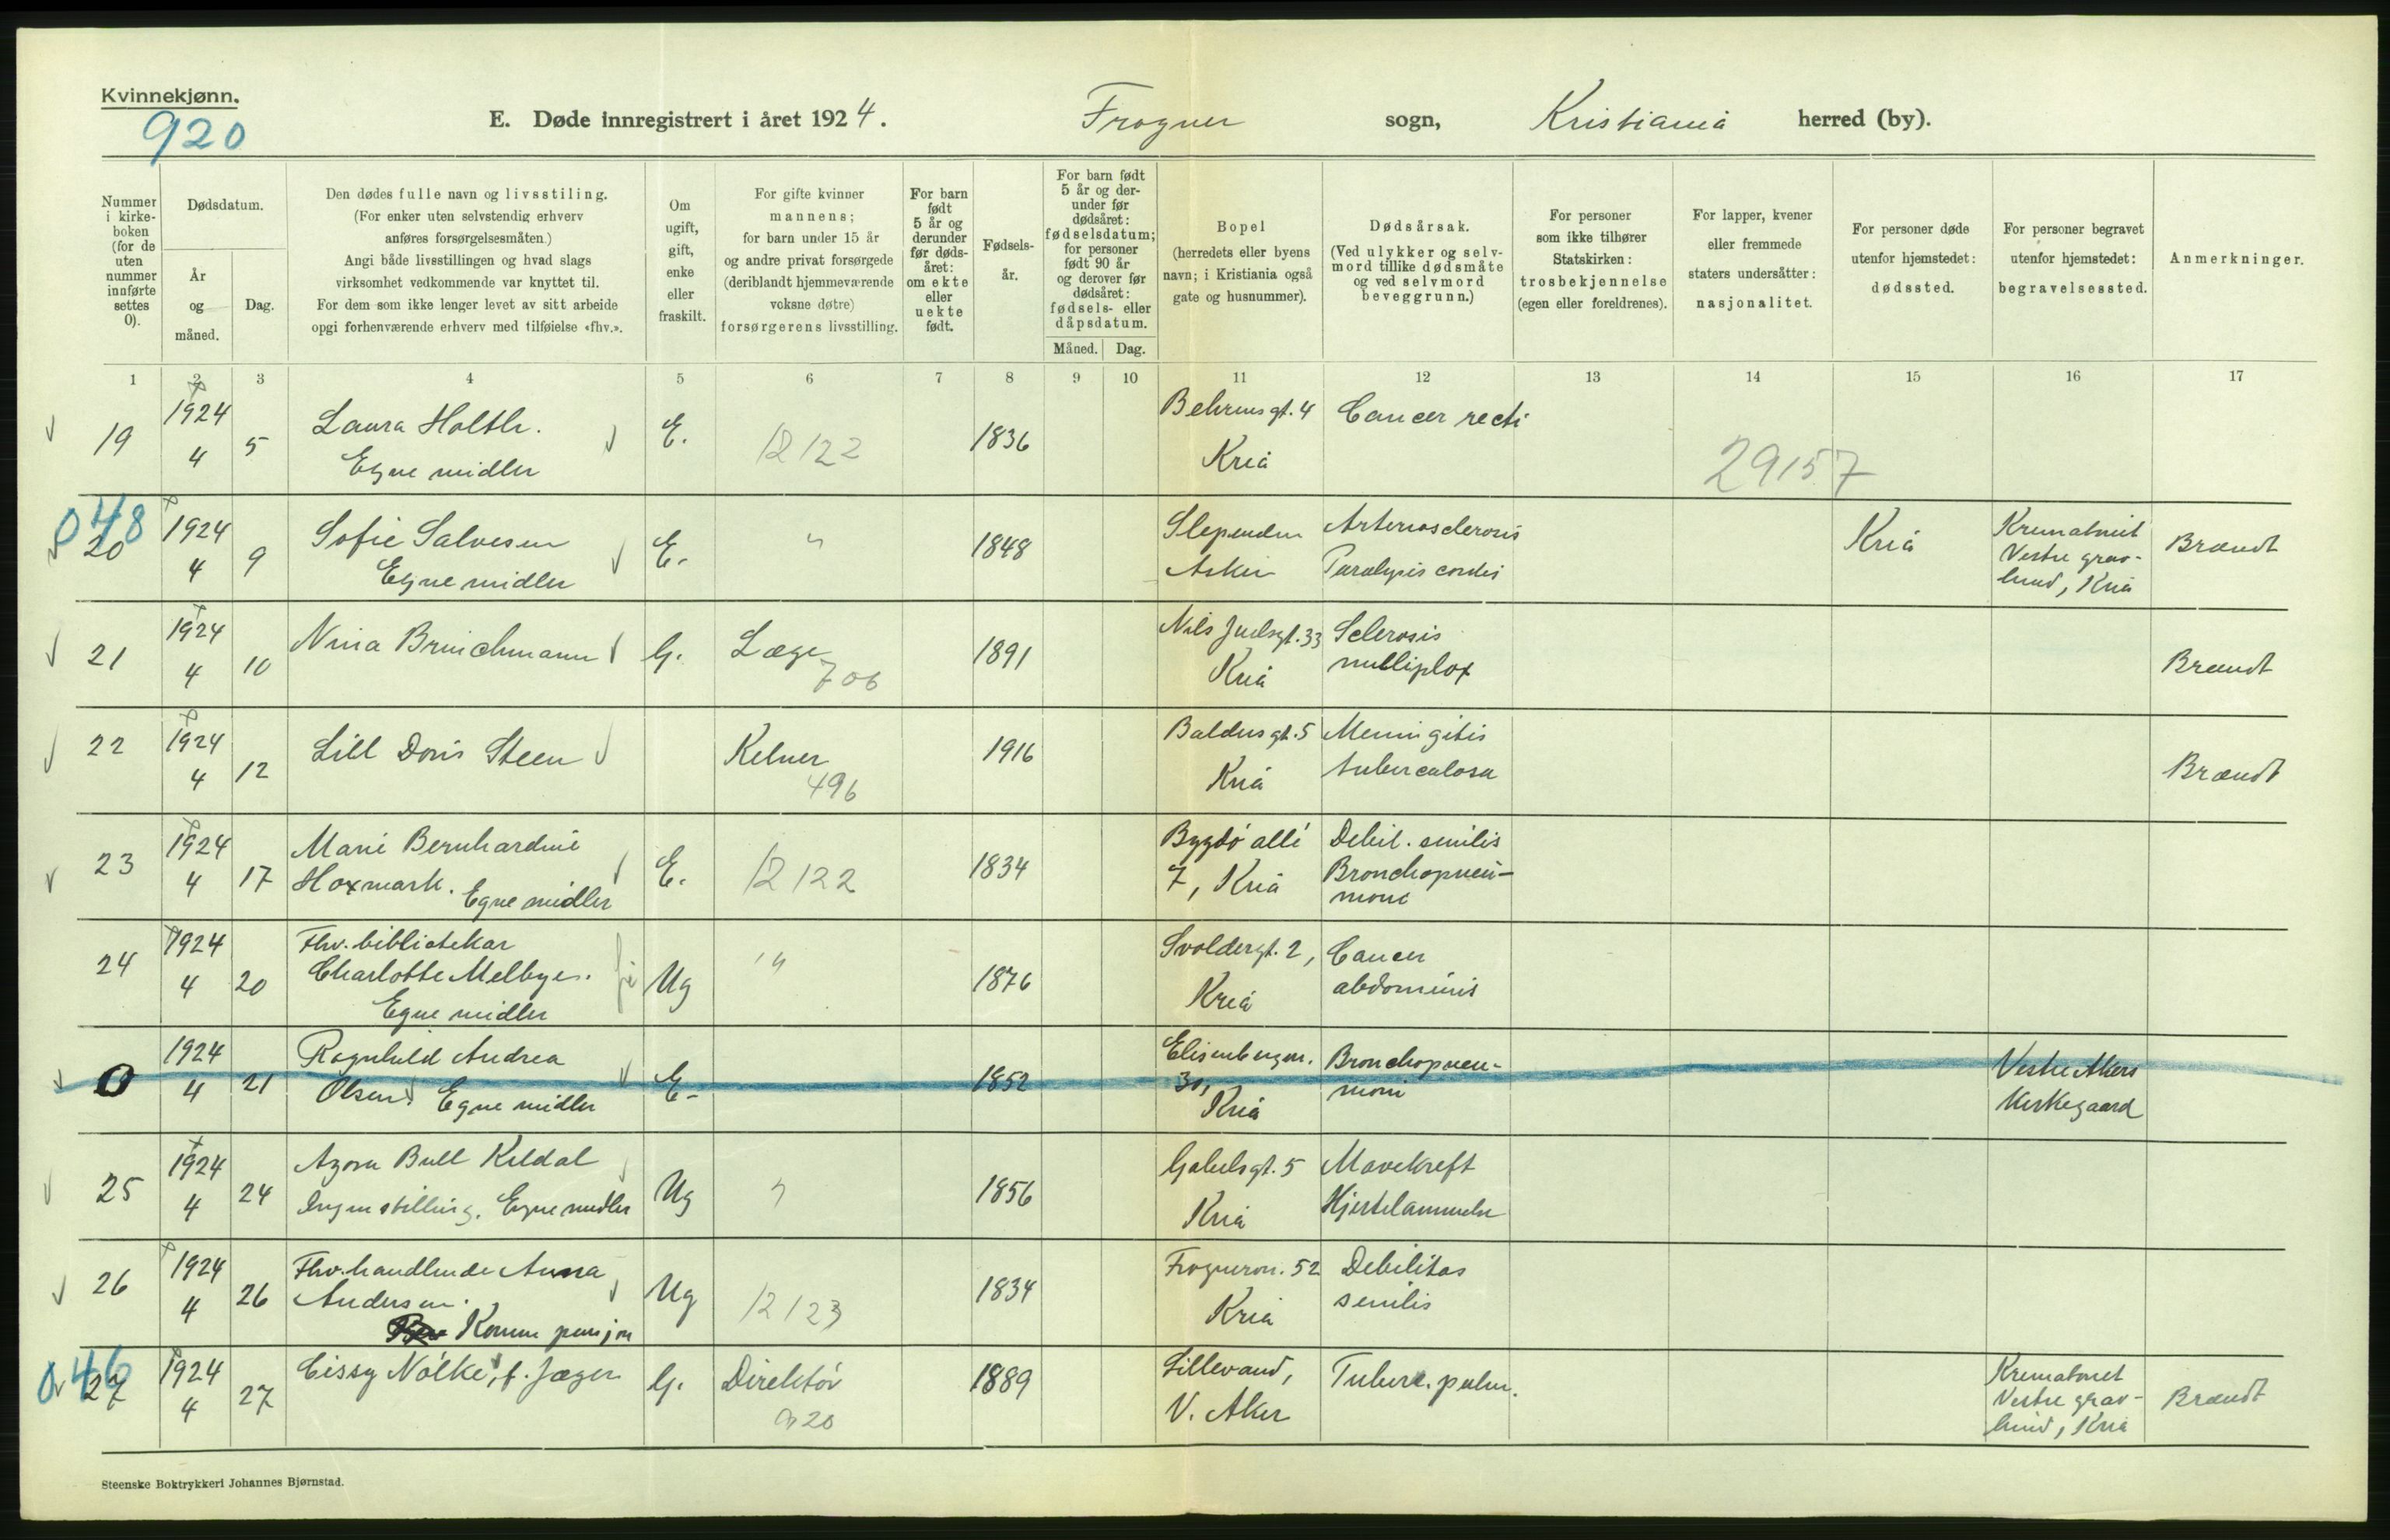 Kvinnekjønn.
920
E. Døde innregistrert i året 1924.
Frogner sogn, Kristiania herred (by).
Nummer i kirke-boken (for de uten nummer innførte settes 0).
Dødsdatum.
År og måned.
Dag.
Den dødes fulle navn og livsstiling.
(For enker uten selvstendig erhverv
anføres forsørgelsesmåten.)
Angi både livsstillingen og hvad slags
virksomhet vedkommende var knyttet til.
For dem som ikke lenger levet av sitt arbeide
opgi forhenværende erhverv med tilføielse «fhv.».
Om ugift, gift, enke eller fraskilt.
For gifte kvinner
mannens;
for barn under 15 år
og andre privat forsørgede
(deriblandt hjemmeværende
voksne døtre)
forsørgerens livsstilling.
For barn født 5 år og derunder før døds-året: om ekte eller uekte født.
Fødsels-år.
For barn født 5 år og der-under før dødsåret: fødselsdatum; for personer født 90 år og derover før dødsåret: fødsels- eller dåpsdatum.
Måned. Dag.
Bopel
(herredets eller byens
navn; i Kristiania også
gate og husnummer).
Dødsårsak.
(Ved ulykker og selv-
mord tillike dødsmåte
og ved selvmord
beveggrunn.)
For personer
som ikke tilhører
Statskirken:
trosbekjennelse
(egen eller foreldrenes).
For lapper, kvener
eller fremmede
staters undersåtter:
nasjonalitet.
For personer døde
utenfor hjemstedet:
dødssted.
For personer begravet
utenfor hjemstedet:
begravelsessted.
Anmerkninger.
1 2 3 4 5 6 7 8 9 10 11 12 13 14 15 16 17
19 1924 4 5 Laura Holth. Egne midler E. 12122 1836 Behrensgt. 4 Kria Cancer recti 29157
048
20 1924 4 9 Sofie Salvesen Egne midler E. " 1848 Slependen Asker Arteriosclerosis Paralysis cordis Kria Krematoriet Vestre grav-lund, Kria Brandt
21 1924 4 10 Nina Brinchmann G. Læge 706 1891 Nils Juelsgt. 33 Kria Sclerosis multiplex Brandt
22 1924 4 12 Lill Doris Steen Kelner 496 1916 Baldersgt. 5 Kria Meningitis tuberculosa Brandt
23 1924 4 17 Marie Bernhardine Hoxmark. Egne midler E. 12122 1834 Bygdö allé 7, Kria Debil. senilis Bronchopneu-moni
24 1924 4 20 Fhv. bibliotekar Charlotte Melbye. Egne midler Ug " 1876 Svoldergt. 2, Kria Cancer abdominis
0 1924 4 21 Ragnhild Andrea Olsen. Egne midler E. 1852 Elisenbergvn. 30, Kria Bronchopneu-moni Vestre Akers Kirkegaard
25 1924 4 24 Agora Bull Kildal Ingen stilling. Egne midler Ug " 1856 Gabelsgt. 5 Kria Mavekreft Hjertelammelse
26 1924 4 26 Fhv. handlende Anna Andersen. Komm pensjon Ug 12123 1834 Frognervn. 52 Kria Debilitas senilis
046
27 1924 4 27 Cissy Nölke, f. Jæger G. Direktör 920 1889 Lillevand, V. Aker Tuberc. pulm. Krematoriet Vestre grav-lund, Kria Brandt
Steenske Boktrykkeri Johannes Bjørnstad.